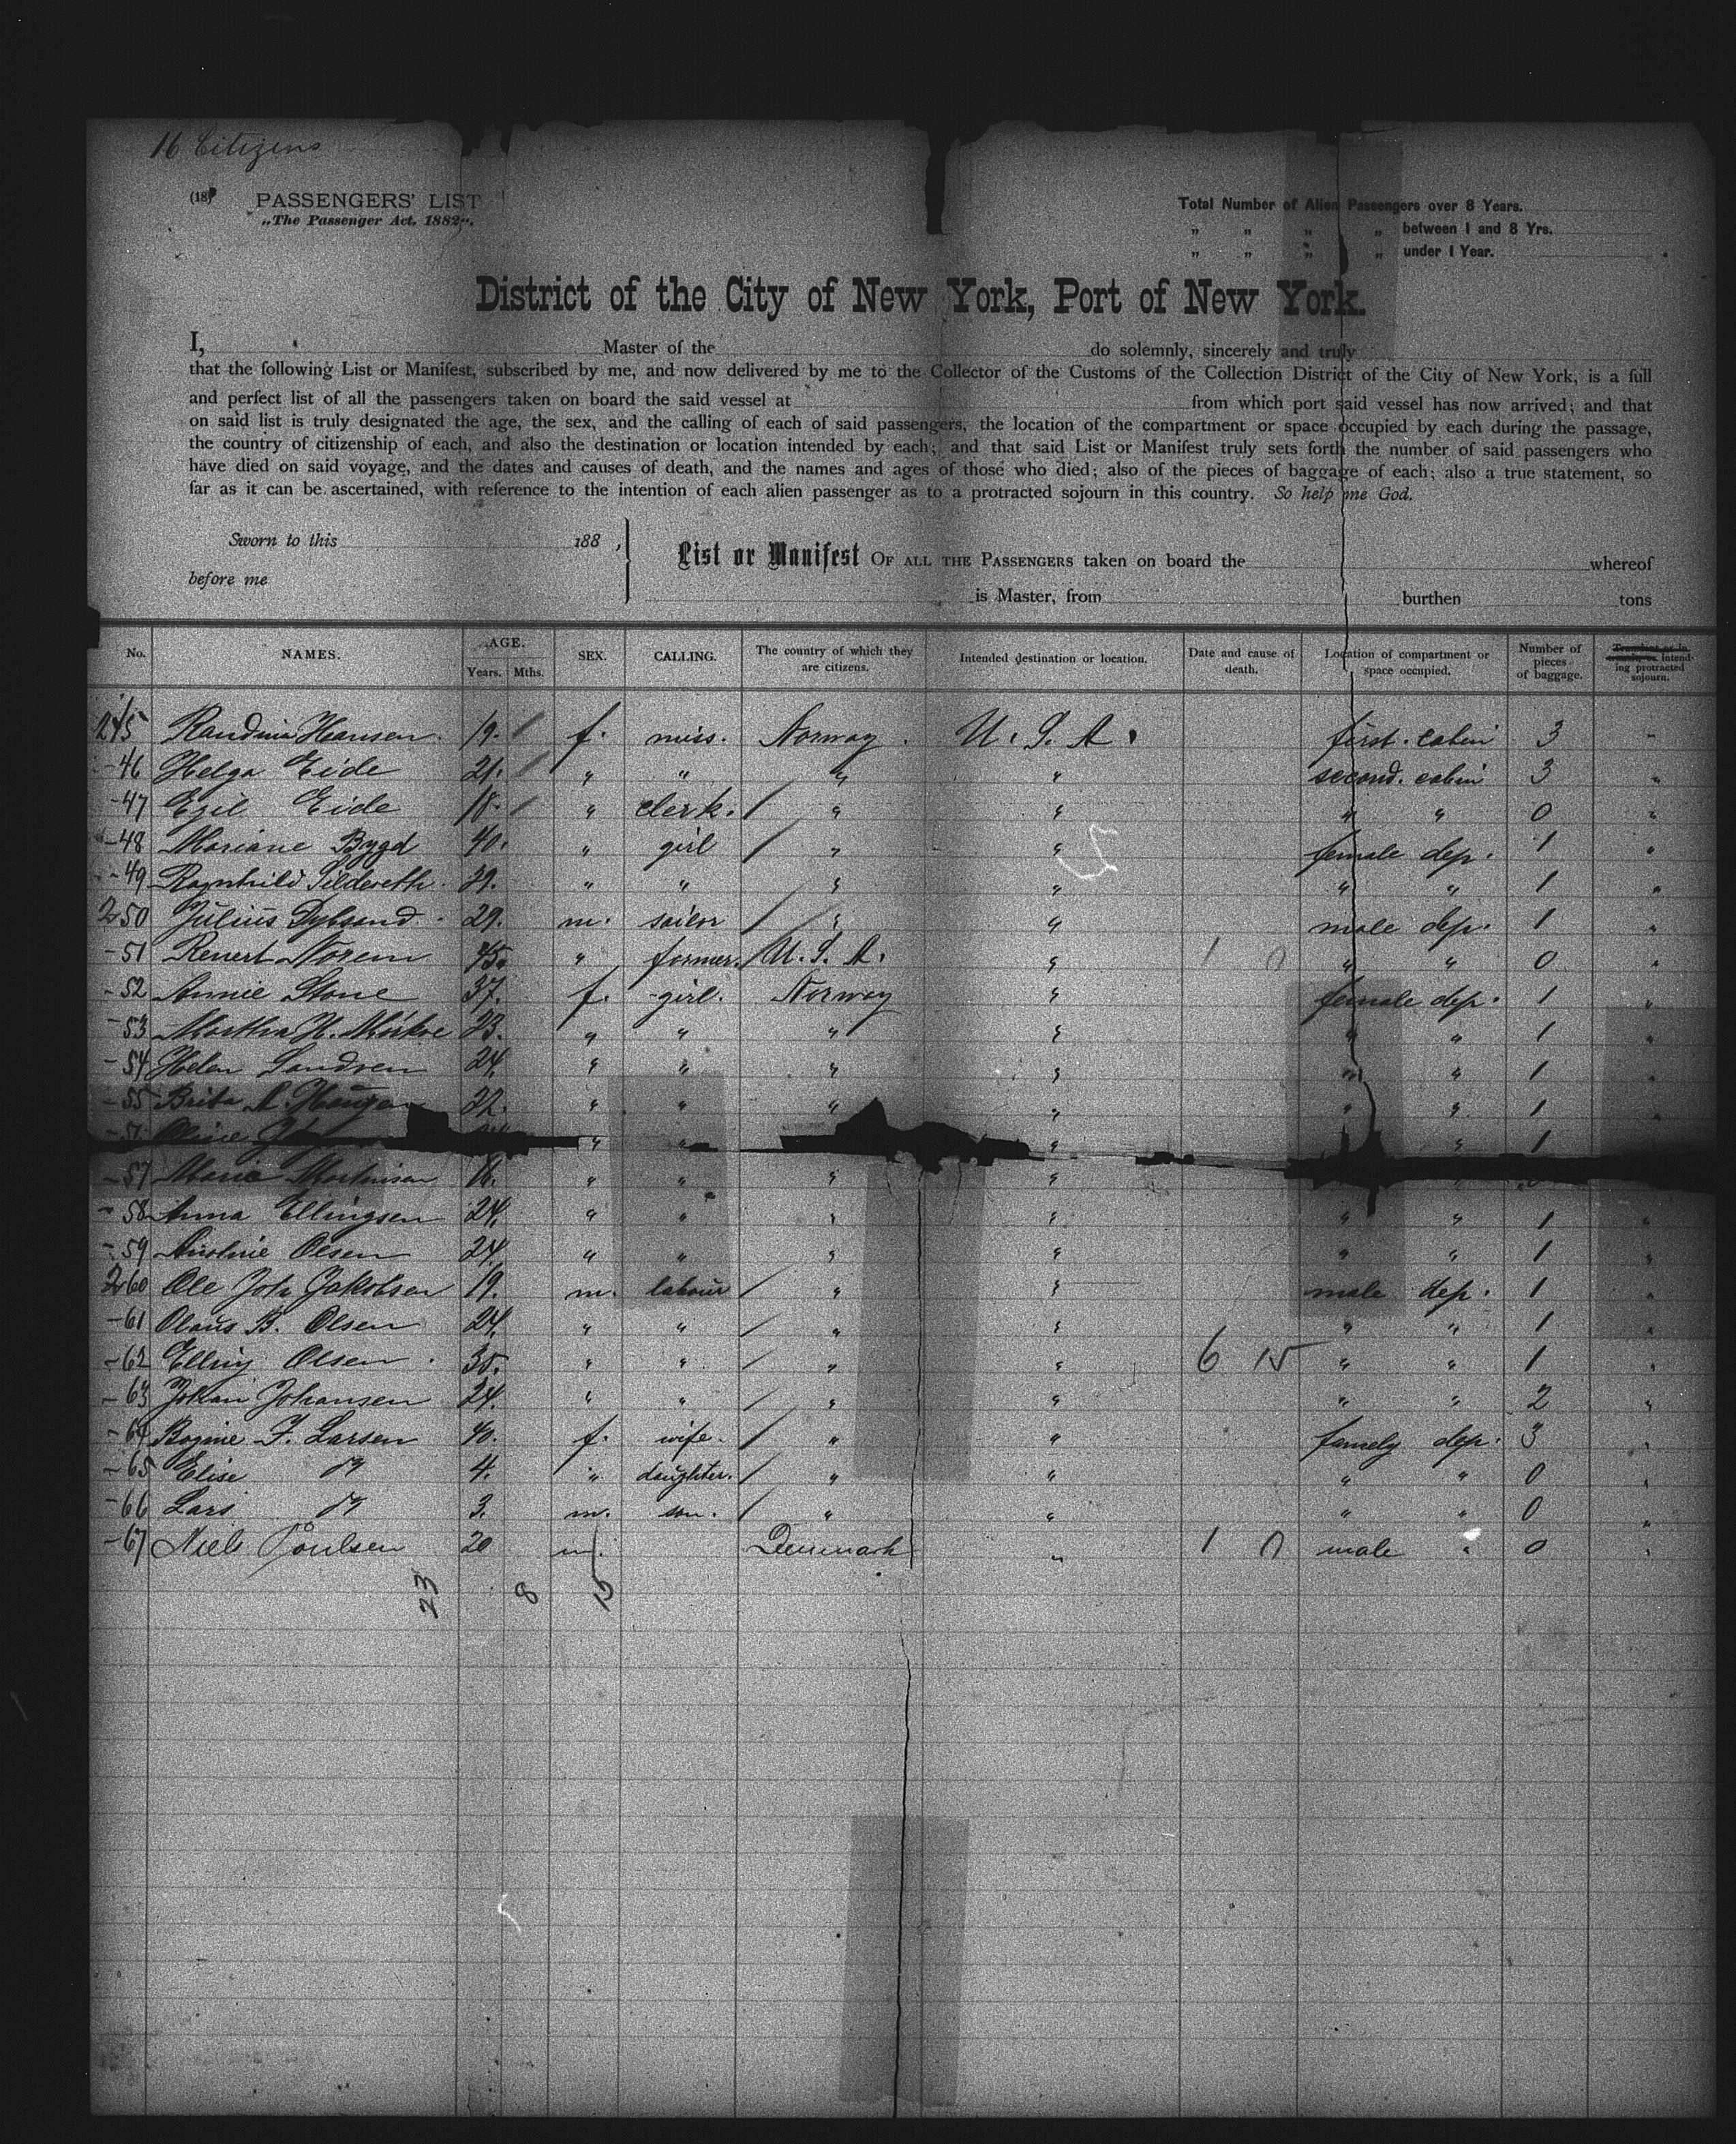 16 Citizens
(18) PASSENGERS' LIST
„The Passenger Act, 1882".
Total Number of Alien Passengers over 8 Years.
„ „ „ „ between 1 and 8 Yrs.
„ „ „ „ under 1 Year.
District of the City of New York, Port of New York.
I, Master of the do solemnly, sincerely and truly
that the following List or Manifest, subscribed by me, and now delivered by me to the Collector of the Customs of the Collection District of the City of New York, is a full
and perfect list of all the passengers taken on board the said vessel at from which port said vessel has now arrived; and that
on said list is truly designated the age, the sex, and the calling of each of said passengers, the location of the compartment or space occupied by each during the passage,
the country of citizenship of each, and also the destination or location intended by each; and that said List or Manifest truly sets forth the number of said passengers who
have died on said voyage, and the dates and causes of death, and the names and ages of those who died; also of the pieces of baggage of each; also a true statement, so
far as it can be ascertained, with reference to the intention of each alien passenger as to a protracted sojourn in this country. So help me God.
Sworn to this 188 ,
before me
List or Manifest OF ALL THE PASSENGERS taken on board the whereof
is Master, from burthen tons
No. NAMES. AGE. Years. Mths. SEX. CALLING. The country of which they are citizens. Intended destination or location. Date and cause of death. Location of compartment or space occupied. Number of pieces of baggage. intending protracted sojourn.
245 Randina Hansen. 19. f. miss. Norway. U. S. A. first. cabin 3 "
-46 Helga Eide 21. " " " " second. cabin 3 "
-47 Egil Eide 18. " clerk. " " " " 0 "
-48 Mariane Bygd 40. " girl " " female dep. 1 "
-49 Ragnhild 39. " " " " " " 1 "
250 Julius 29. m. sailor " " male dep. 1 "
-51 Norem 45. " farmer. U. S. A. " 1 0 " " 0 "
-52 Annie Stone 37. f. girl. Norway " female dep. 1 "
-53 Martha H. 23. " " " " " " 1 "
-54 Helen 24. " " " " " " 1 "
-55 Brita A. 22. " " " " " " 1 "
" " " " 1
-57 Marie Martinsen 16. " " " "
-58 Anna Ellingsen 24. " " " " " " 1 "
-59 Olsen 24. " " " " " " 1 "
260 Ole Joh Jakobsen 19. m. labour " " male dep. 1 "
-61 Olaus B. Olsen 24. " " " " " " 1 "
-62 Elling Olsen. 35. " " " " 6 15 " " 1 "
-63 Johan Johansen 24. " " " " " " 2 "
-64 F. Larsen 40. f. wife. " " famely dep. 3 "
-65 Elise do 4. " daughter. " " " " 0 "
-66 Lars do 3. m. son. " " " " 0 "
-67 Niels Poulsen 20 m. Denmark " 1 0 male " 0 "
23 8 15